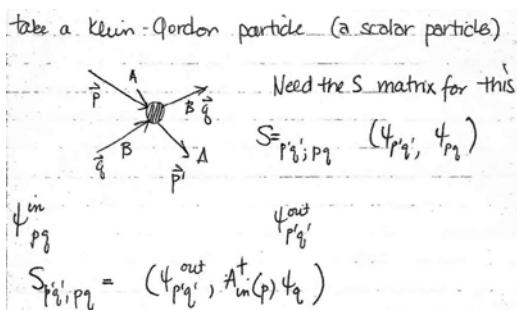 take a Klein-Gordon particle (a scalar particle)
A
p⃗
B q⃗
q⃗ B A
p⃗'
Need the S matrix for this
S=p'q';pq (ψp'q', ψpq)
ψ^in_pq ψ^out_p'q'
S_p'q';pq = (ψ^out_p'q', A^†_in(p) ψq)